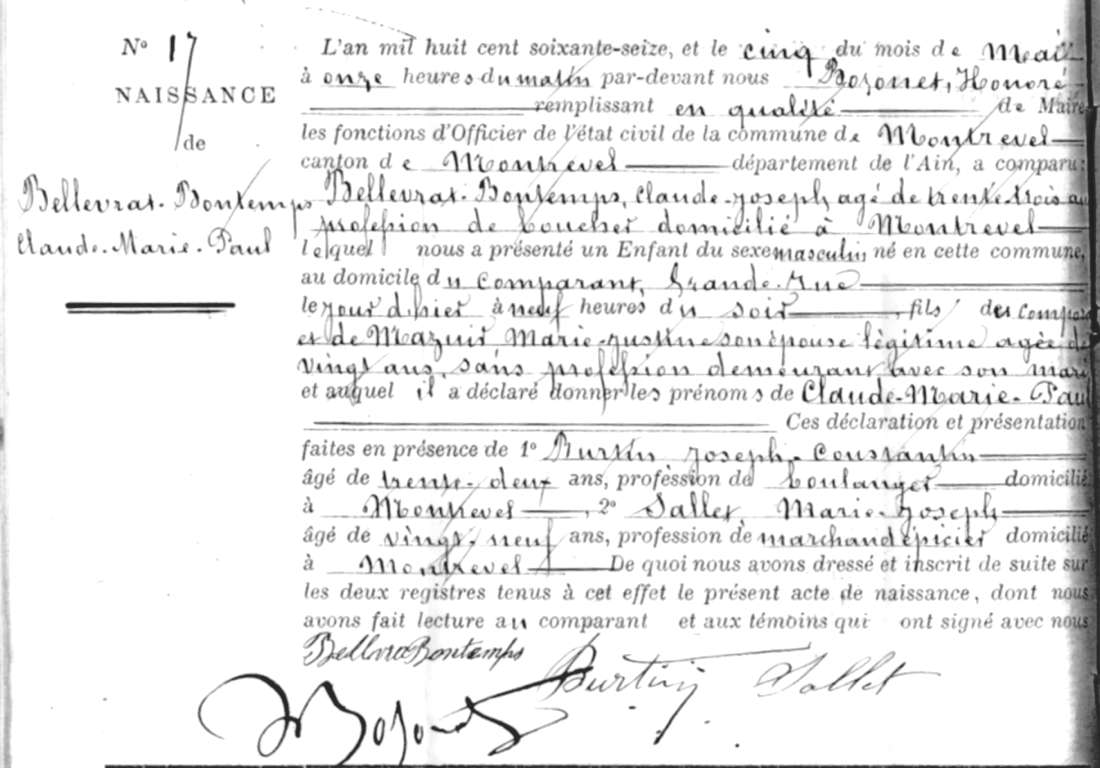 N° 17
NAISSANCE
de
Bellevrat-Bontemps
Claude-Marie-Paul
L'an mil huit cent soixante-seize, et le cinq du mois de Mai
à onze heures du matin par-devant nous Bozonet, Honoré
remplissant en qualité de Maire
les fonctions d'Officier de l'état civil de la commune de Montrevel
canton de Montrevel département de l'Ain, a comparu:
Bellevrat-Bontemps, Claude-Joseph, agé de trente-trois an
profession de boucher domicilié à Montrevel
lequel nous a présenté un Enfant du sexe masculin né en cette commune,
au domicile du comparant, Grande-Rue
le jour d'hier à neuf heures du soir, fils du compar
et de Mazuir Marie-Justine son épouse légitime agée de
vingt ans, sans profession demeurant avec son mari
et auquel il a déclaré donner les prénoms de Claude-Marie-Paul
Ces déclaration et présentation
faites en présence de 1° Burtin Joseph-Constantin
âgé de trente-deux ans, profession de boulanger domicilié
à Montrevel, 2° Sallet, Marie-Joseph
âgé de vingt-neuf ans, profession de marchand épicier domicilié
à Montrevel De quoi nous avons dressé et inscrit de suite sur
les deux registres tenus à cet effet le présent acte de naissance, dont nous
avons fait lecture au comparant et aux témoins qui ont signé avec nous
BellvraBontemps Burtin Sallet
Bozonet